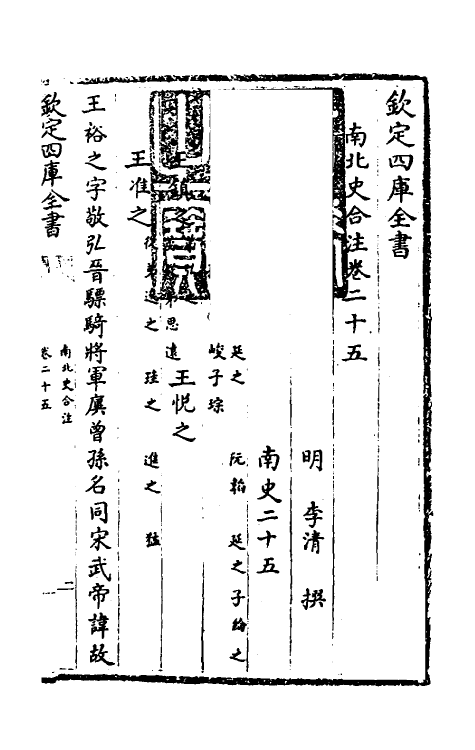 欽定四庫全書
南北史合注卷二十五
明 李清 撰
南史二十五
延之 阮韜 延之子綸之
峻子琮
思遠 王悅之
王准之
從弟逡之 珪之 進之 猛
王裕之字敬弘晉驃騎將軍廙曾孫名同宋武帝諱故
欽定四庫全書
南北史合注
卷二十五